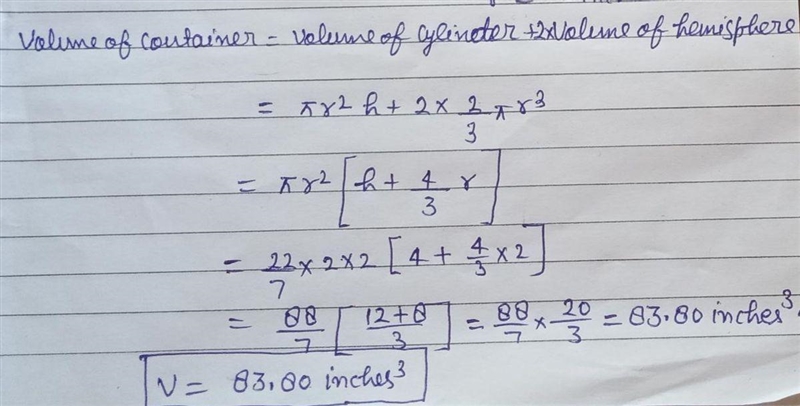 Volume of container = Volume of cylinder + 2x Volume of hemisphere
= πr² h + 2 × 2/3 πr³
= πr² [h + 4/3 r]
= 22/7 × 2 × 2 [4 + 4/3 × 2]
= 88/7 [12+8/3] = 88/7 × 20/3 = 83.80 inches³.
V = 83.80 inches³